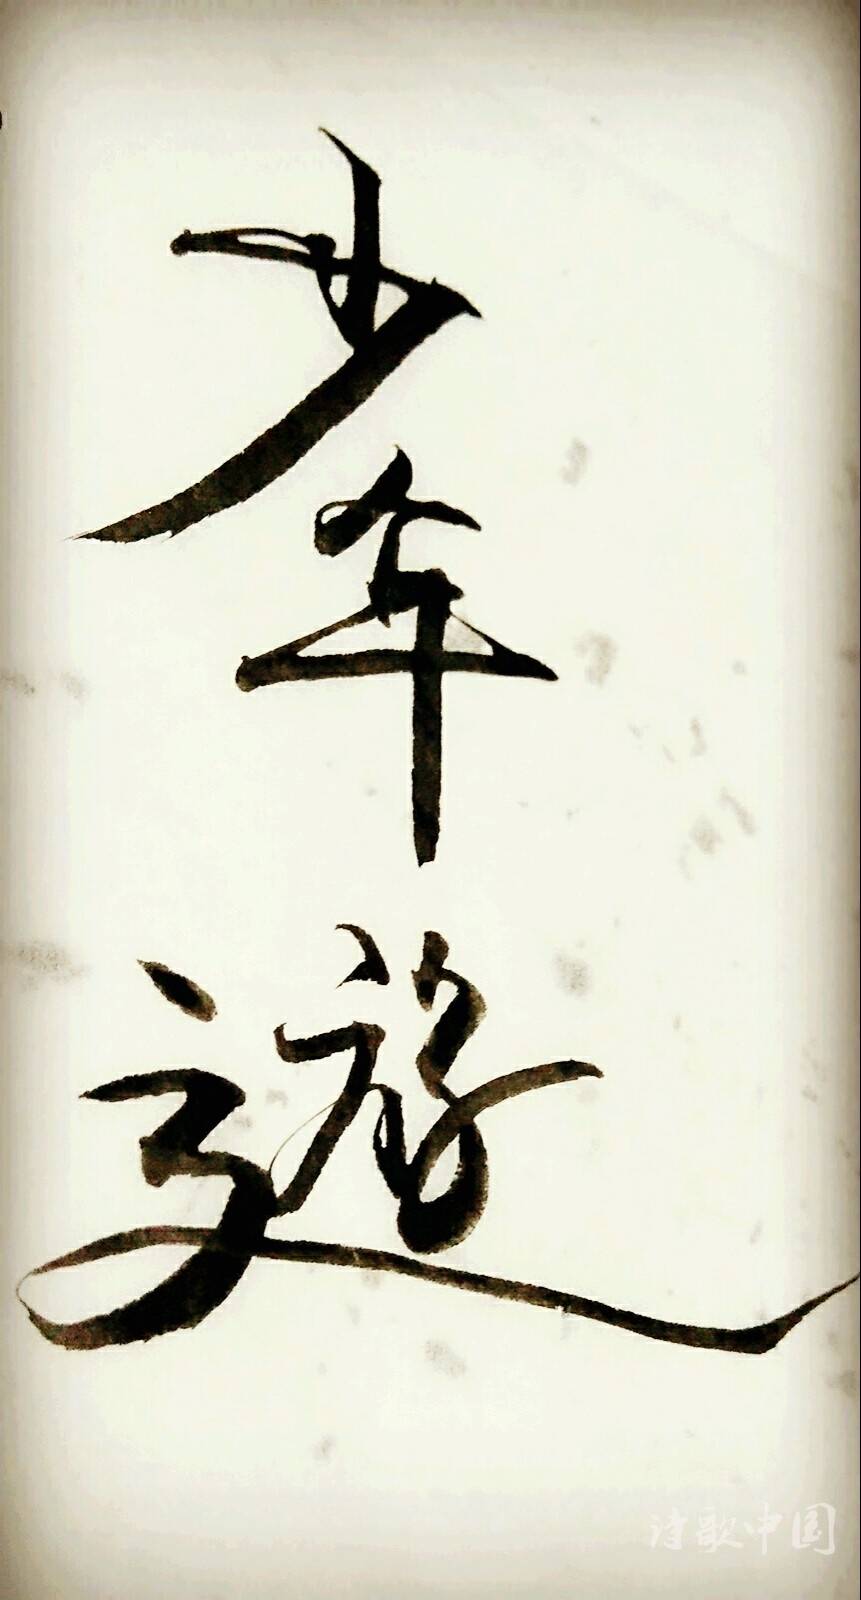 少年遊
诗歌中国